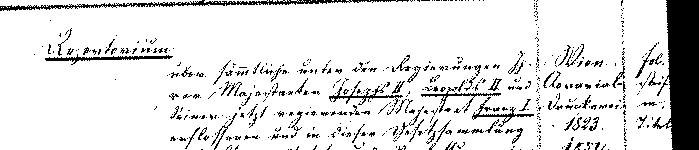 Repertorium
über sämmtliche unter den Regierungen
Majestäten Josephs II, Leopolds II und
Seiner jetzt regierenden Majestaet Franz I
erflossenen und in dieser Gesetzsammlung
Wien
Aerarial-
Druckerei
1823.
fol.
m.
Titel